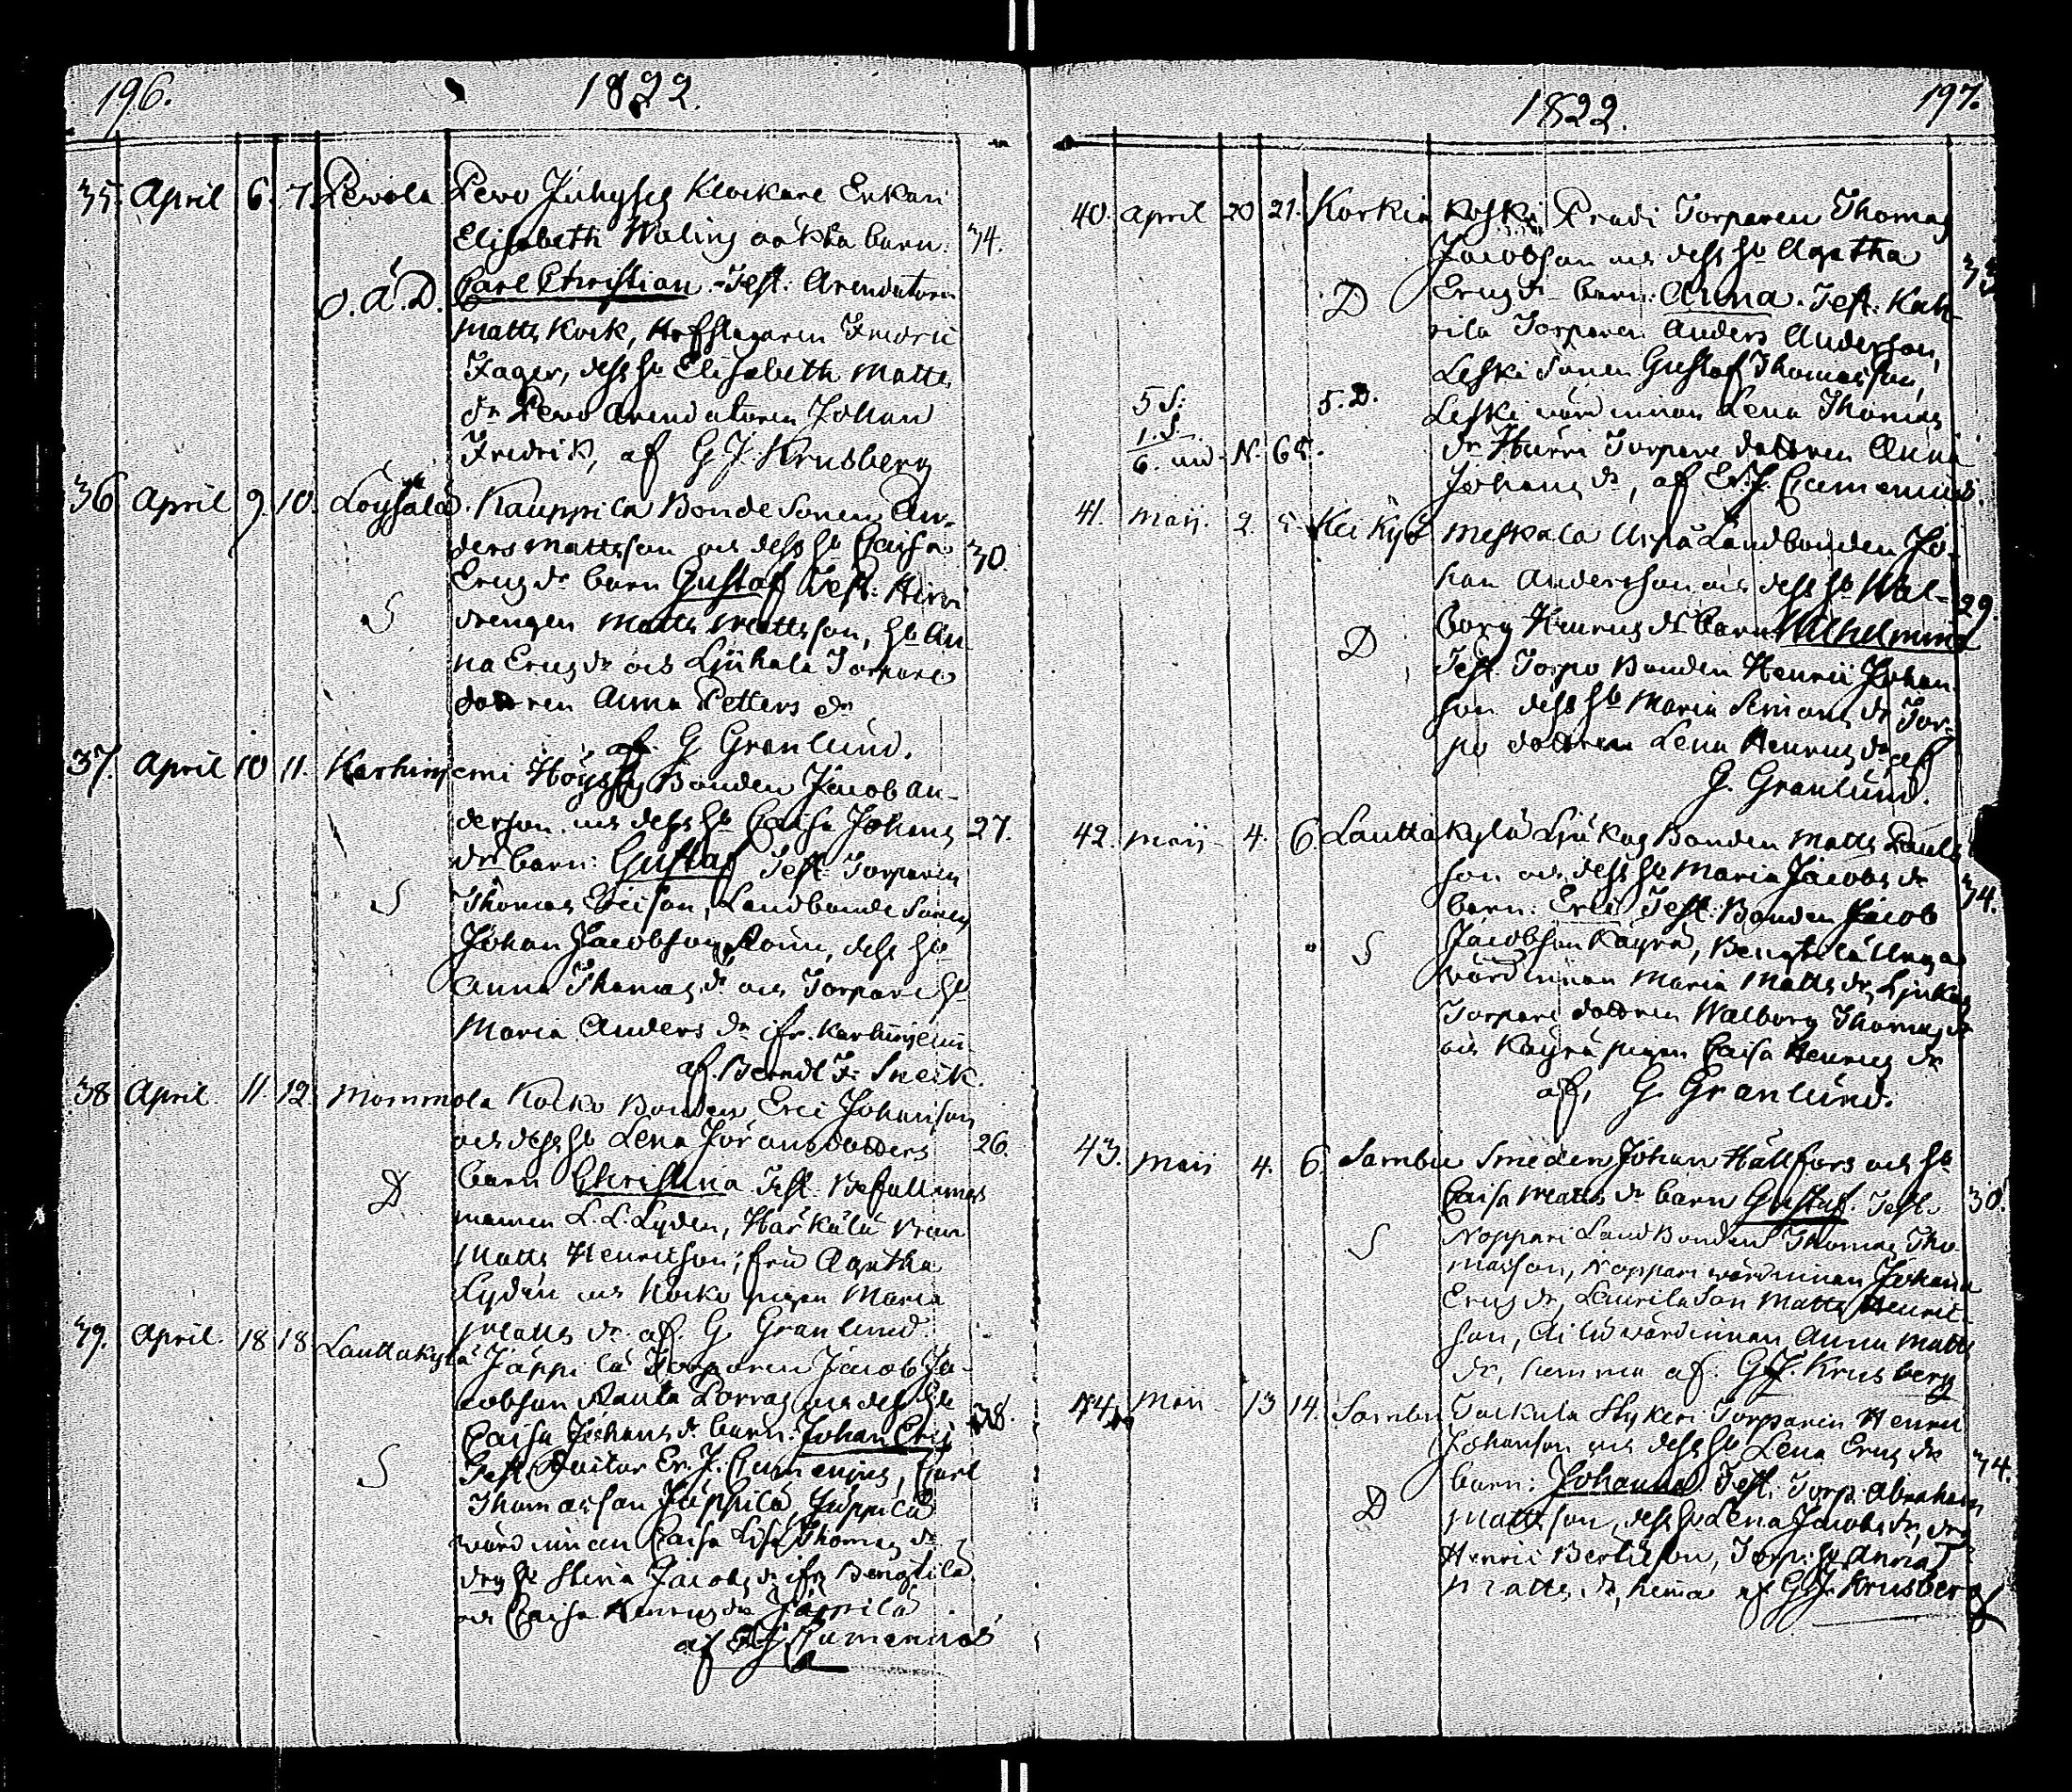 196.
1822.
35. April 6. 7. Pevola Pevo Juhyses Klockare Enkan
Elisabeth Walins oäkta barn. 34.
o.ä.D. Carl Christian. Test: Arendatorn
Matts Kock, Hofslagaren Fredric
Fager, dess h. Elisabeth Matts
dr Pevo Arendatoren Johan
Fredrik, af G J. Krusberg
36 April 9. 10. Loysala. Kauppila Bonde Sonen An-
ders Mattsson och dess h. Caisa 30.
Ericsdr barn Gustaf Test: Hirvi
S drengen Matts Mattsson, h. An-
na Ericsdr och Ljuhala Torpare
dottren Anna Petters dr
af. G. Granlund.
37. April 10 11. Karhiniemi Höyssy Bonden Jacob An-
derson och dess h. Caisa Johans 27.
dr barn: Gustaf Test: Torparen
S Thomas Ericson, Landbonde Sonen
Johan Jacobson, dess h.
Anna Thomas dr och Torpare h.
Maria Anders dr ifr. Karhiniemi
af. Berndt F. Sneck.
38 April. 11. 12. Mommola Kocko Bonden Eric Johanson
och dess h. Lena Jörans dotters 26.
D barn Christina Test. Befallnings
mannen L. L. Lyden, Härkälä
Matts Henricson, fru Agatha
Lyden och Kocko pigan Maria
Matts dr af. G. Granlund
39. April. 18 18 Lauttakylä Jäppilä Torparen Jacob Ja-
cobson Rauta Lorvas och dess h. 38.
Caisa Johans dr barn: Johan Eric
S Test Er. J. Cumenius, Carl
Thomasson Jäppilä, Jäppilä
värdinnan Caisa Lisa Thomas dr
drg h. Stina Jacobs dr ifr Bengtilä
och Caisa Henrics dr Jäppilä
af E J Cumenius
1822.
197.
40. April 20 21. Korkia koski Pradi Torparen Thomas
Jacobson och dess h. Agatha 33
D Erics dr barn: Anna. Test: Kah-
rila Torparen Anders Anderson,
Leski Sonen Gustaf Thomasson,
5 S. 5. D. Leski värdinnan Lena Thomas
1. S.
6. und. N. 65. dr Hurri Torpare dottren Anna
Johans dr, af Er. J. Cumenius.
41. Maij. 2. 5. Keikyä Meskala Uspä Landbonden Jo-
han Anderson och dess h. Wal- 29.
D borg Henrics dr barn: Wilhelmina
Test. Torpo Bonden Henric Johan
son dess h. Maria Simons dr Tor-
po dottren Lena Henrics dr af
G. Granlund.
42. Maij 4. 6. Lauttakylä Ljukas Bonden Matts Pauls
son och dess h. Maria Jacobs dr 34.
barn: Eric Test: Bonden Jacob
S Jacobson Käyrä, Bengtilä Unga
värdinnan Maria Matts dr, Ljukas
Torpare dottren Walborg Thomas dr
och Käyrä pigan Caisa Henrics dr
af. G. Granlund.
43. Maij 4. 6. Sambu Smeden Johan Hällfors och h.
Caisa Matts dr barn Gustaf. Test. 30.
S Noppari Landbonden Thomas Tho-
masson, Noppari värdinnan Johanna
Erics dr, Laurila Son Matts Henric-
son, värdinnan Anna Matts
dr, hemma af. G J. Krusberg
44. Maij 13 14. Sambu Tackula Stykeri Torparen Henric
Johanson och dess h. Lena Erics dr 34.
barn: Johanna Test. Torp. Abraham
D Mattsson, dess h. Lena Jacobs dr, drg
Henric Bertilson, Torp. h. Anna
Matts dr, hemma af G J. Krusberg